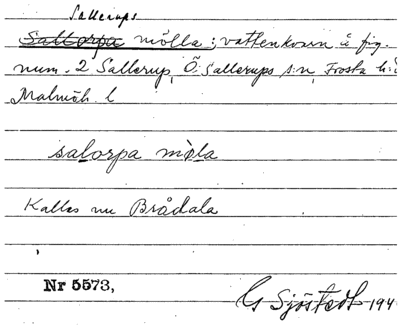 Sallerups
Sallorpa mölla : vattenkvarn å fig.
num. 2 Sallerup, Ö. Sallerups s:n, Frosta h:d
Malmöh. l
salorpa mǫla
Kallas nu Brådala
Nr 5573,
G Sjöstedt 194